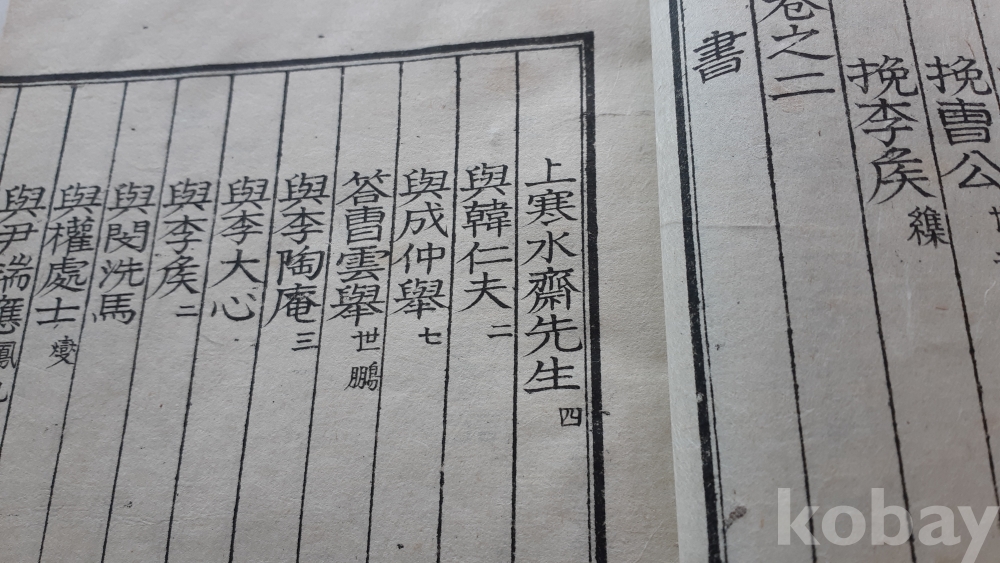 挽曹公
挽李矦
卷之二
書
上寒水齋先生 四
與韓仁夫 二
與成仲舉 七
答曹雲舉 世鵬
與李陶庵 三
與李大心
與李矦 二
與閔洗馬
與權處士 燮
與尹瑞應 鳳九
kobay